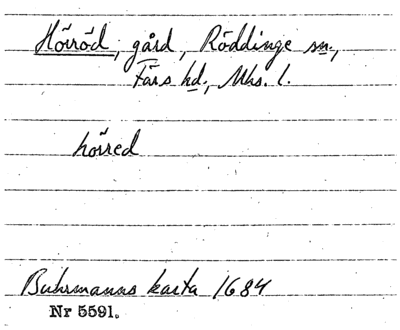 Hörröd, gård, Röddinge sn.,
Färs hd., Mhs. l.
hörred
Buhrmanns karta 1684
Nr 5591.